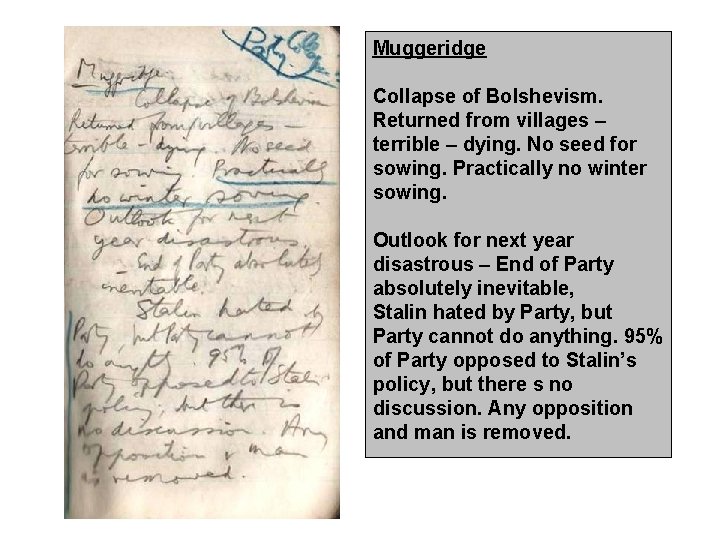 Party. Collapse
Muggeridge.
Collapse of Bolshevism
Returned from villages –
terrible – dying. No seed
for sowing. Practically
no winter sowing.
Outlook for next
year disastrous.
– End of Party absolutely
inevitable.
Stalin hated by
Party, but Party cannot
do anyth. 95% of
Party opposed to Stalin's
policy, but there is
no discussion. Any
opposition & man
is removed.
Muggeridge
Collapse of Bolshevism.
Returned from villages –
terrible – dying. No seed for
sowing. Practically no winter
sowing.
Outlook for next year
disastrous – End of Party
absolutely inevitable,
Stalin hated by Party, but
Party cannot do anything. 95%
of Party opposed to Stalin’s
policy, but there s no
discussion. Any opposition
and man is removed.